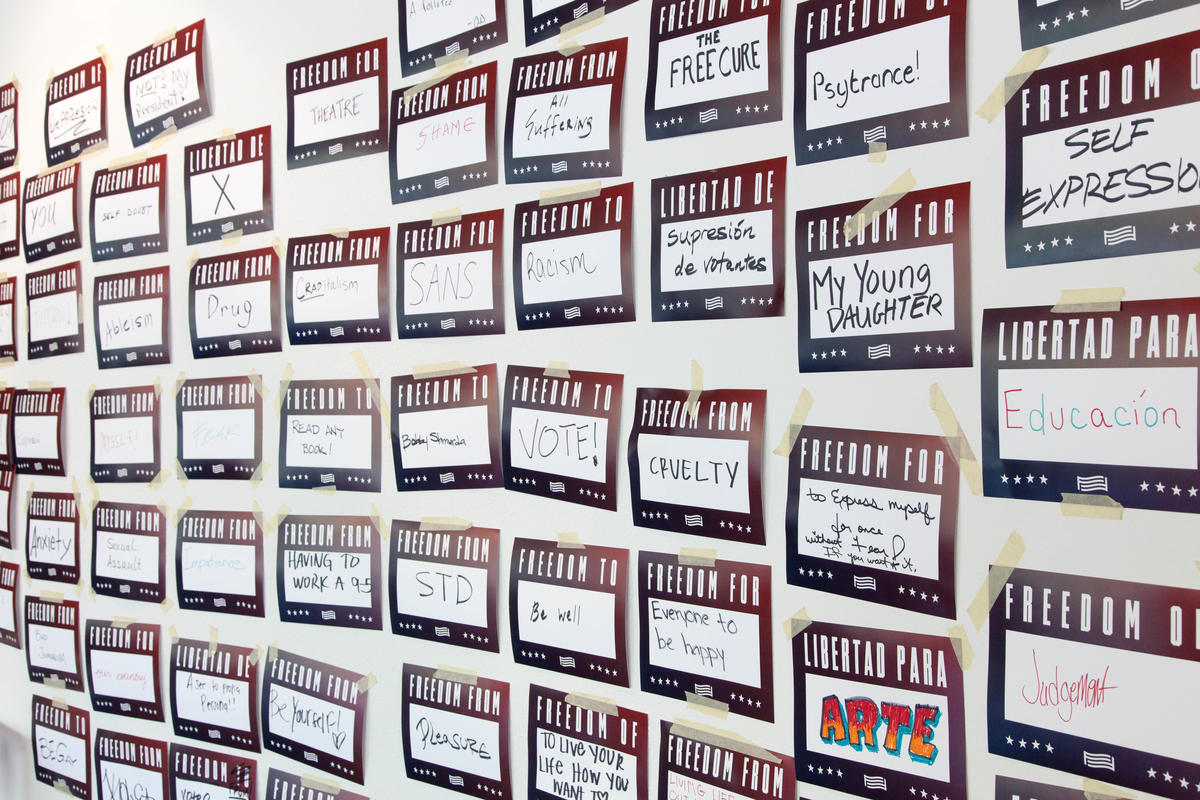 A Polluted
FREEDOM OF
DEPRESSION
FREEDOM TO
NOT! My
President!
FREEDOM FOR
THEATRE
FREEDOM FROM
SHAME
FREEDOM FROM
All
Suffering
FREEDOM FOR
THE
FREE CURE
FREEDOM OF
Psytrance!
FREEDOM O
SELF
EXPRESSIO
FREEDOM FROM
YOU
FREEDOM FROM
SELF DOUBT
LIBERTAD DE
X
FREEDOM FROM
FREEDOM FROM
Ableism
FREEDOM FROM
Drug
FREEDOM FROM
CRAPitalism
FREEDOM FOR
SANS
FREEDOM TO
Racism
LIBERTAD DE
Supresión
de votantes
FREEDOM FOR
My Young
DAUGHTER
LIBERTAD PARA
Educación
LIBERTAD DE
FREEDOM FROM
MYSELF!
FREEDOM FROM
FEAR
FREEDOM TO
READ ANY
BOOK!
FREEDOM TO
Bobby Shmurda
FREEDOM TO
VOTE!
FREEDOM FROM
CRUELTY
FREEDOM FOR
to Express myself
for once
without Fear
If you want it.
FREEDOM FROM
Anxiety
FREEDOM FROM
Sexual
Assault
FREEDOM FROM
Impatience
FREEDOM FROM
HAVING TO
WORK A 9-5
FREEDOM FROM
STD
FREEDOM TO
Be well
FREEDOM FOR
Everyone to
be happy
LIBERTAD PARA
ARTE
FREEDOM O
Judgement
FREEDOM FROM
FREEDOM FROM
our country
LIBERTAD DE
A ser tu propia
Persona!!
FREEDOM FROM
Be Yourself!
FREEDOM FROM
PLEASURE
FREEDOM OF
TO LIVE YOUR
LIFE HOW YOU
WANT TO
FREEDOM FROM
LIVING LIFE
FREEDOM TO
BE GAY
FREEDOM FROM
FREEDOM